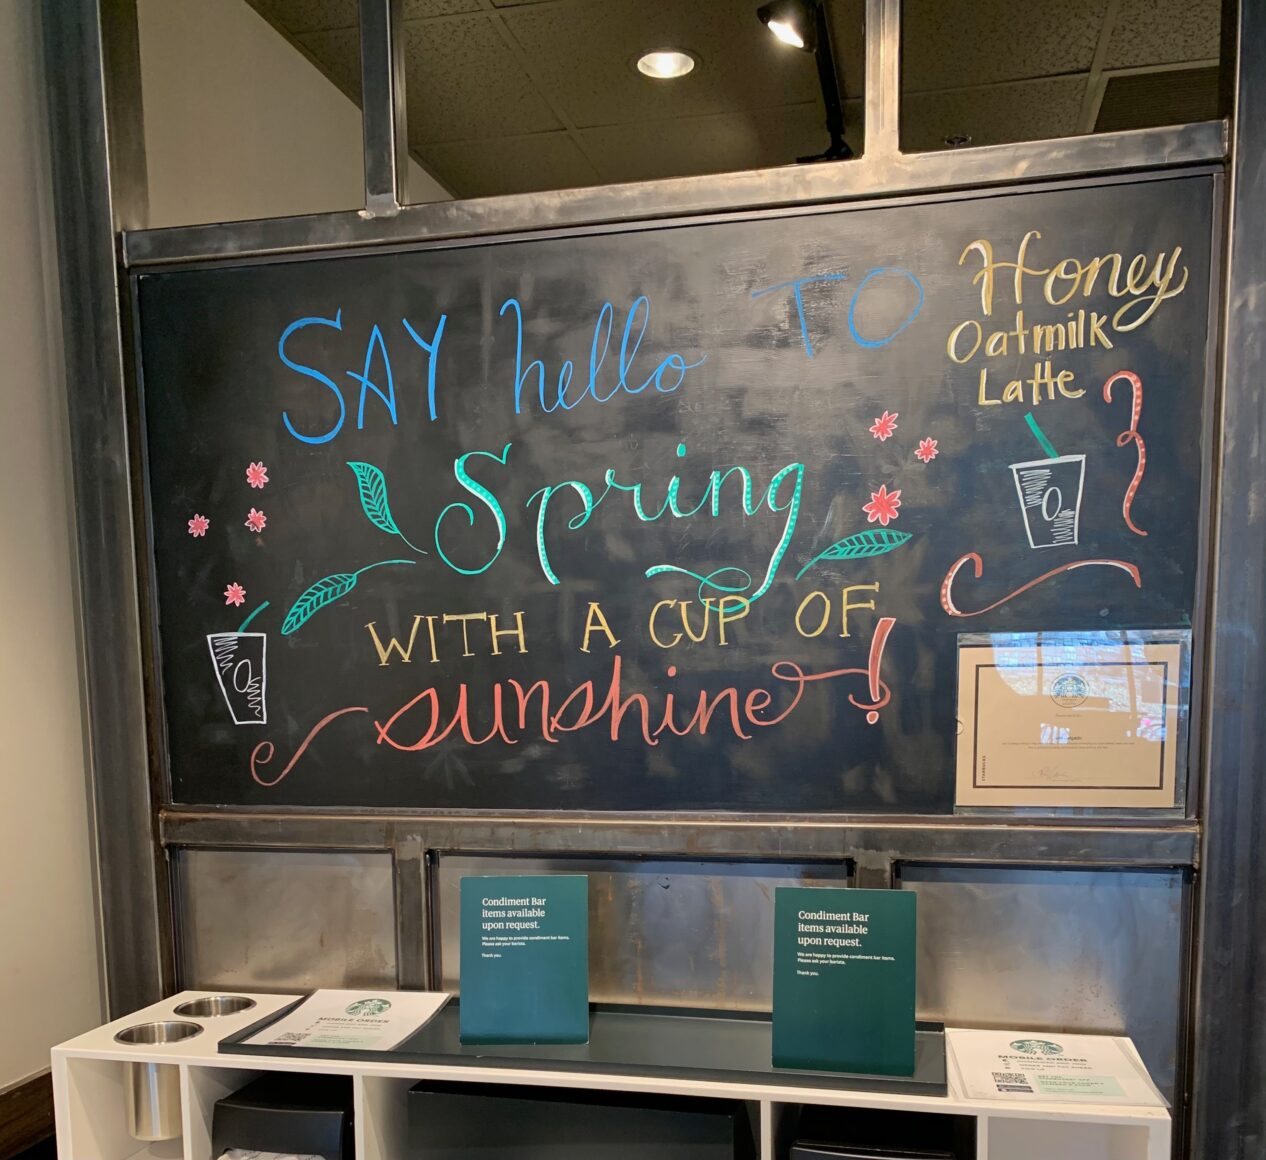 SAY hello TO
Spring
WITH A CUP OF
sunshine!
Honey
Oatmilk
Latte
STARBUCKS
Condiment Bar
items available
upon request.
We are happy to provide condiment bar items.
Please ask your barista.
Thank you.
Condiment Bar
items available
upon request.
We are happy to provide condiment bar items.
Please ask your barista.
Thank you.
MOBILE ORDER
MOBILE ORDER